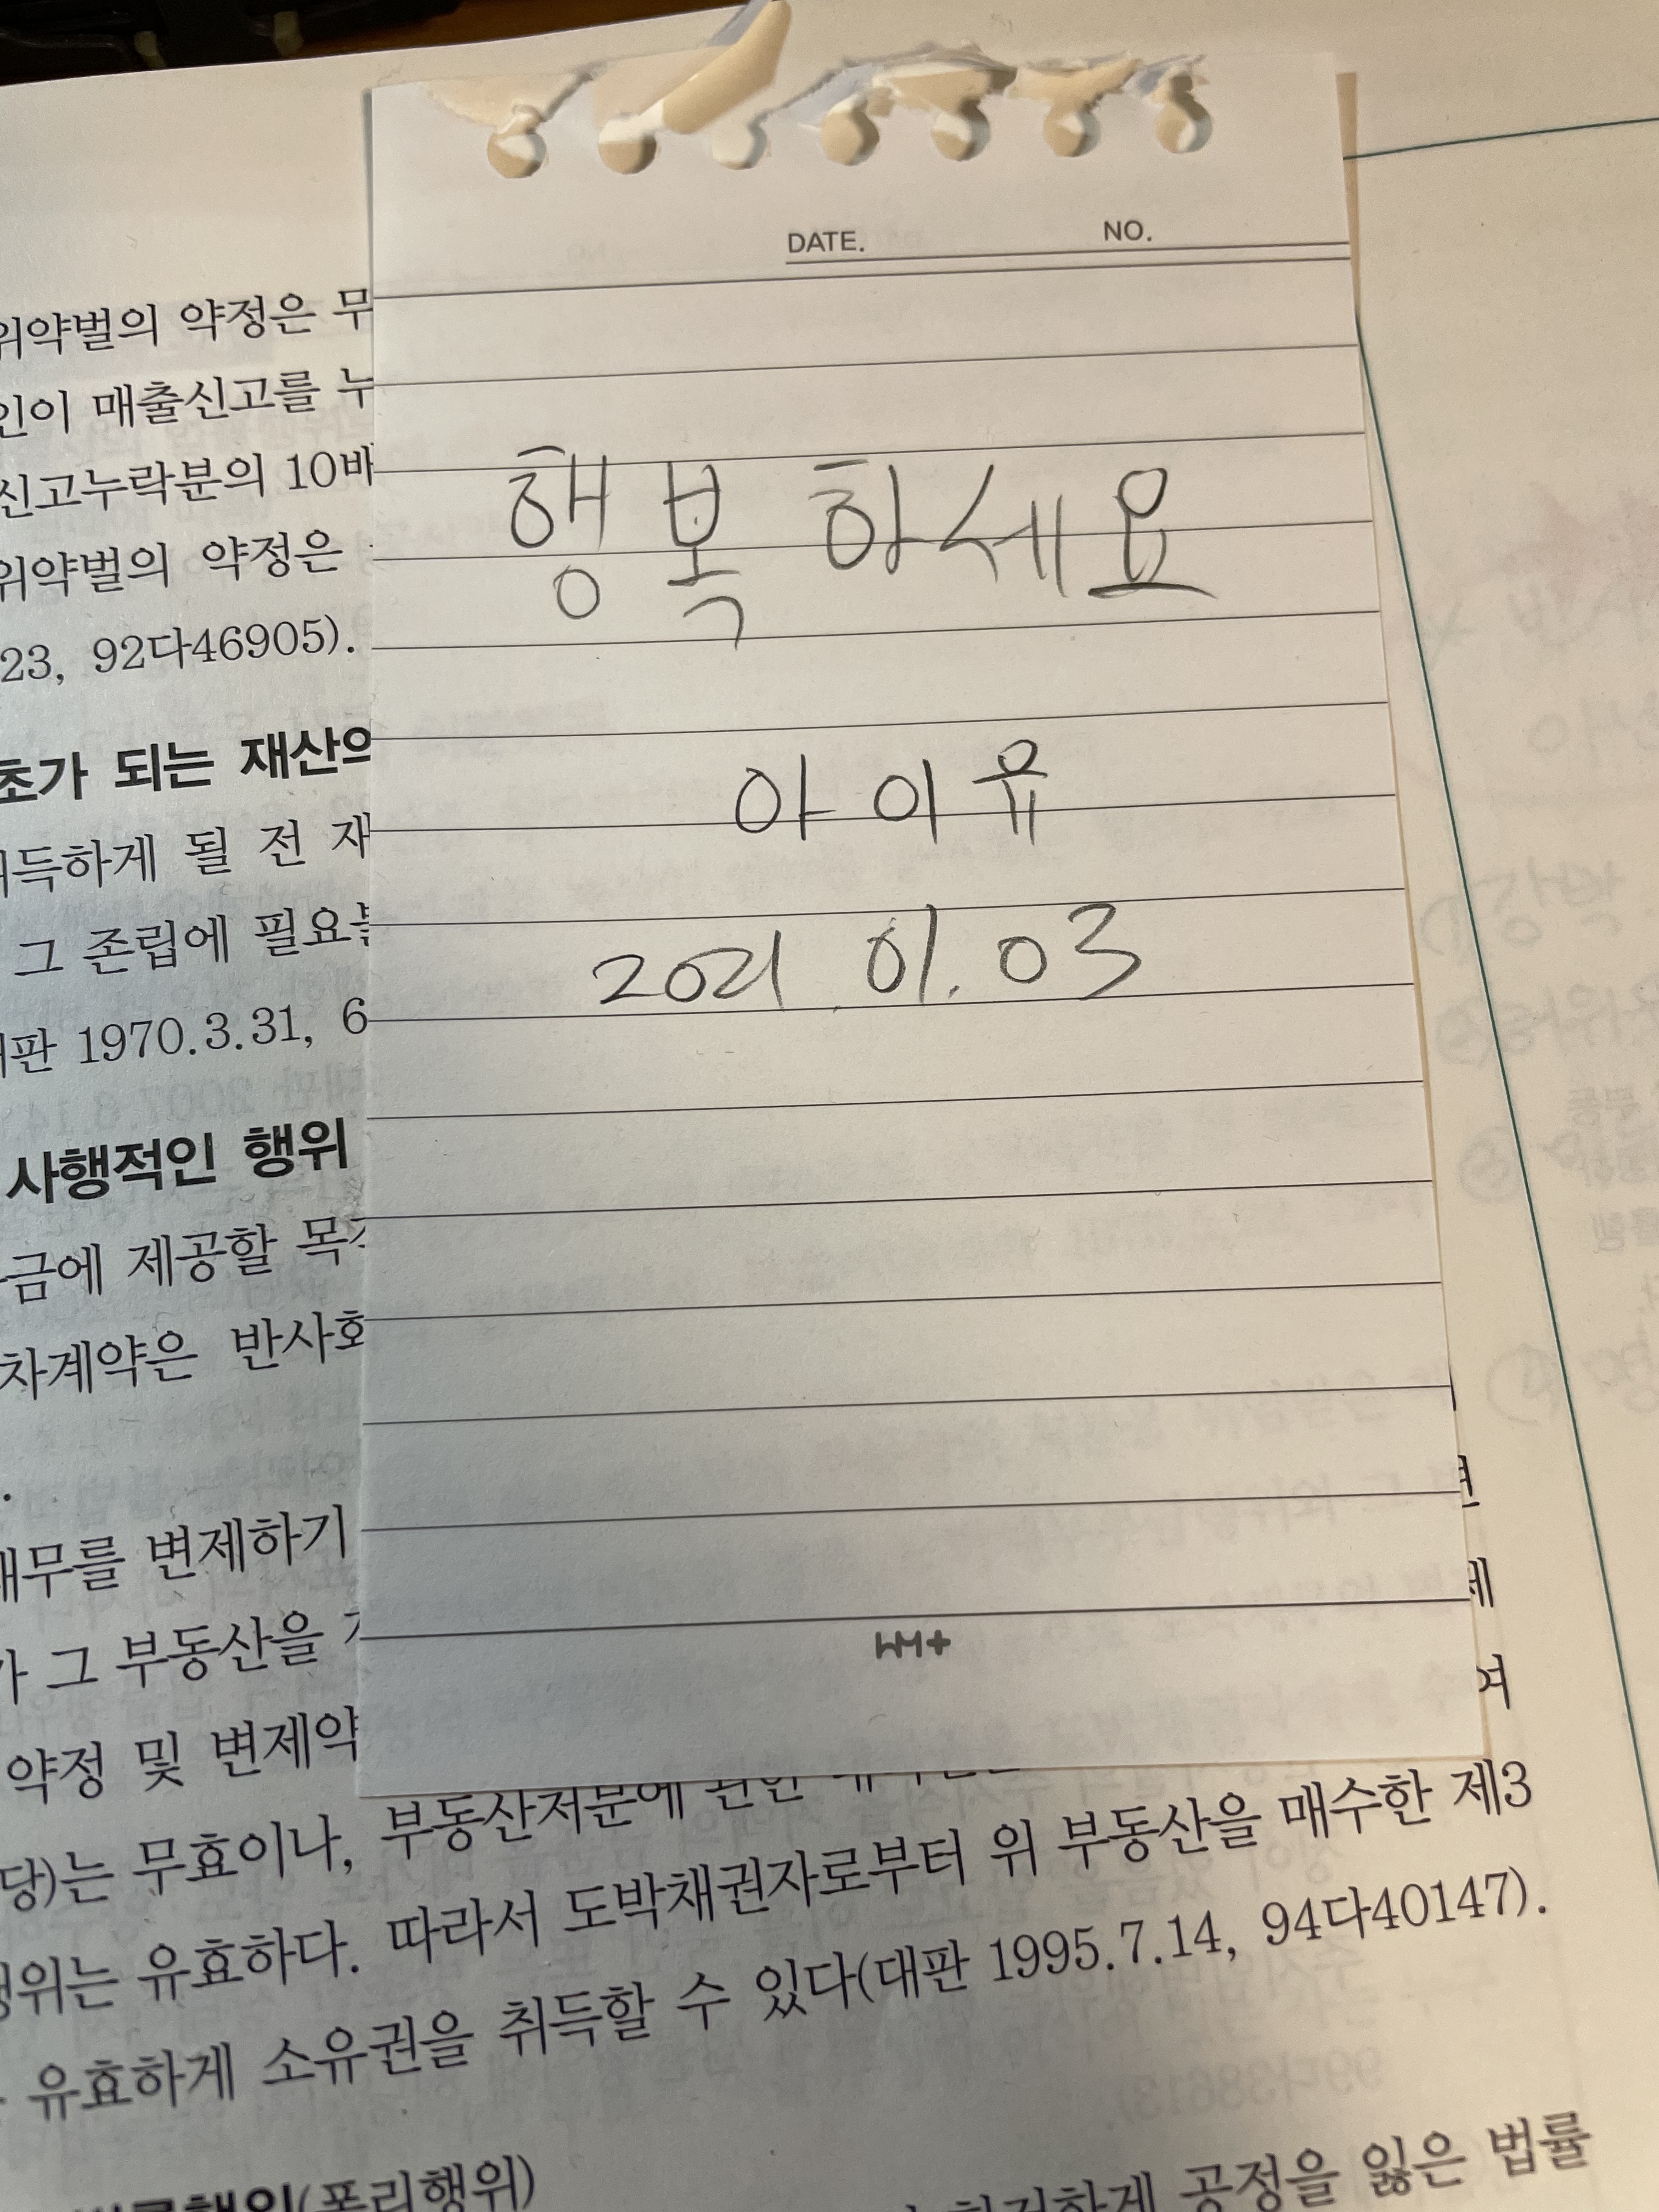 DATE. NO.
행복하세요
아이유
2021. 01. 03
위약벌의 약정은 무
인이 매출신고를 누
신고누락분의 10배
위약벌의 약정은
23, 92다46905).
초가 되는 재산의
득하게 될 전 재
그 존립에 필요한
판 1970.3.31, 6
사행적인 행위
금에 제공할 목적
차계약은 반사회
채무를 변제하기
가 그 부동산을
약정 및 변제약
여
당)는 무효이나, 부동산처분에 관한
행위는 유효하다. 따라서 도박채권자로부터 위 부동산을 매수한 제3
유효하게 소유권을 취득할 수 있다(대판 1995.7.14, 94다40147).
(폭리행위)
공정을 잃은 법률